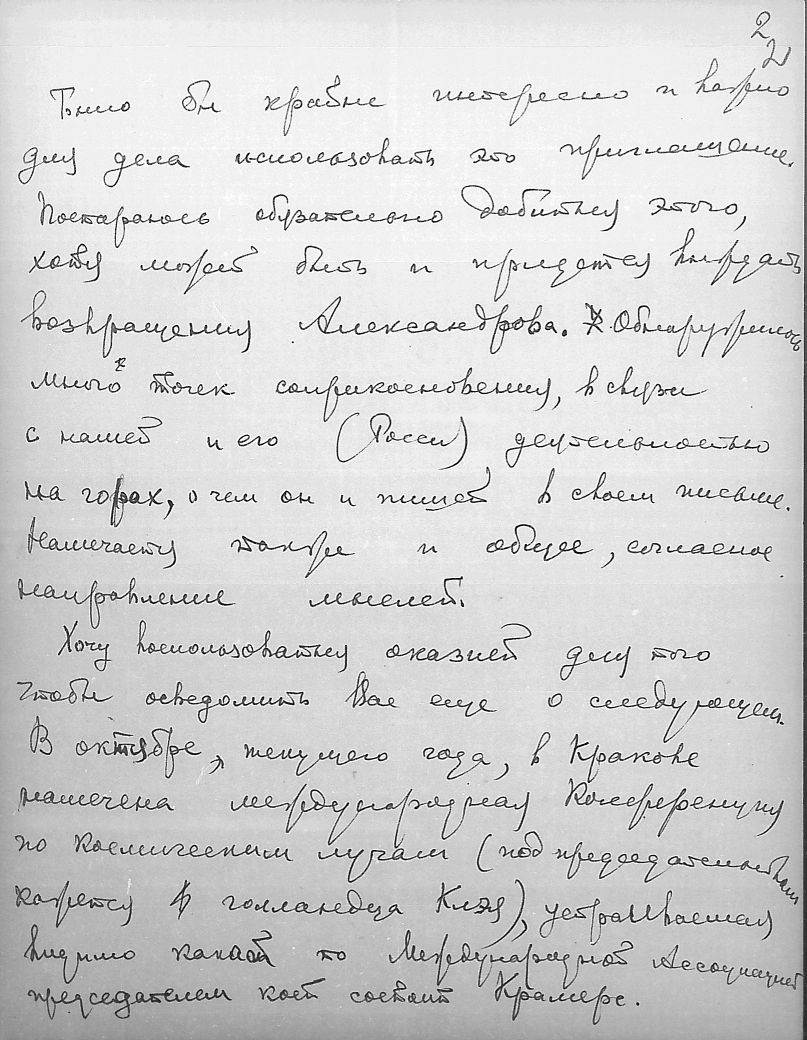 2
2
Было бы крайне интересно и важно
для дела использовать это приглашение.
Постараюсь обязательно добиться этого,
хотя может быть и придется выждать
возвращения Александрова. Обнаружилось
много точек соприкосновения, в связи
с нашей и его (Росси) деятельностью
на горах, о чем он и пишет в своем письме.
Намечается также и общее, согласное
направление мыслей.
Хочу воспользоваться оказией для того
чтобы осведомить Вас еще о следующем.
В октябре, текущего года, в Кракове
намечена международная Конференция
по космическим лучам (под председательством
кажется голландца Клэя), устраиваемая
видимо какой то Международной Ассоциацией
председателем коей состоит Крамерс.